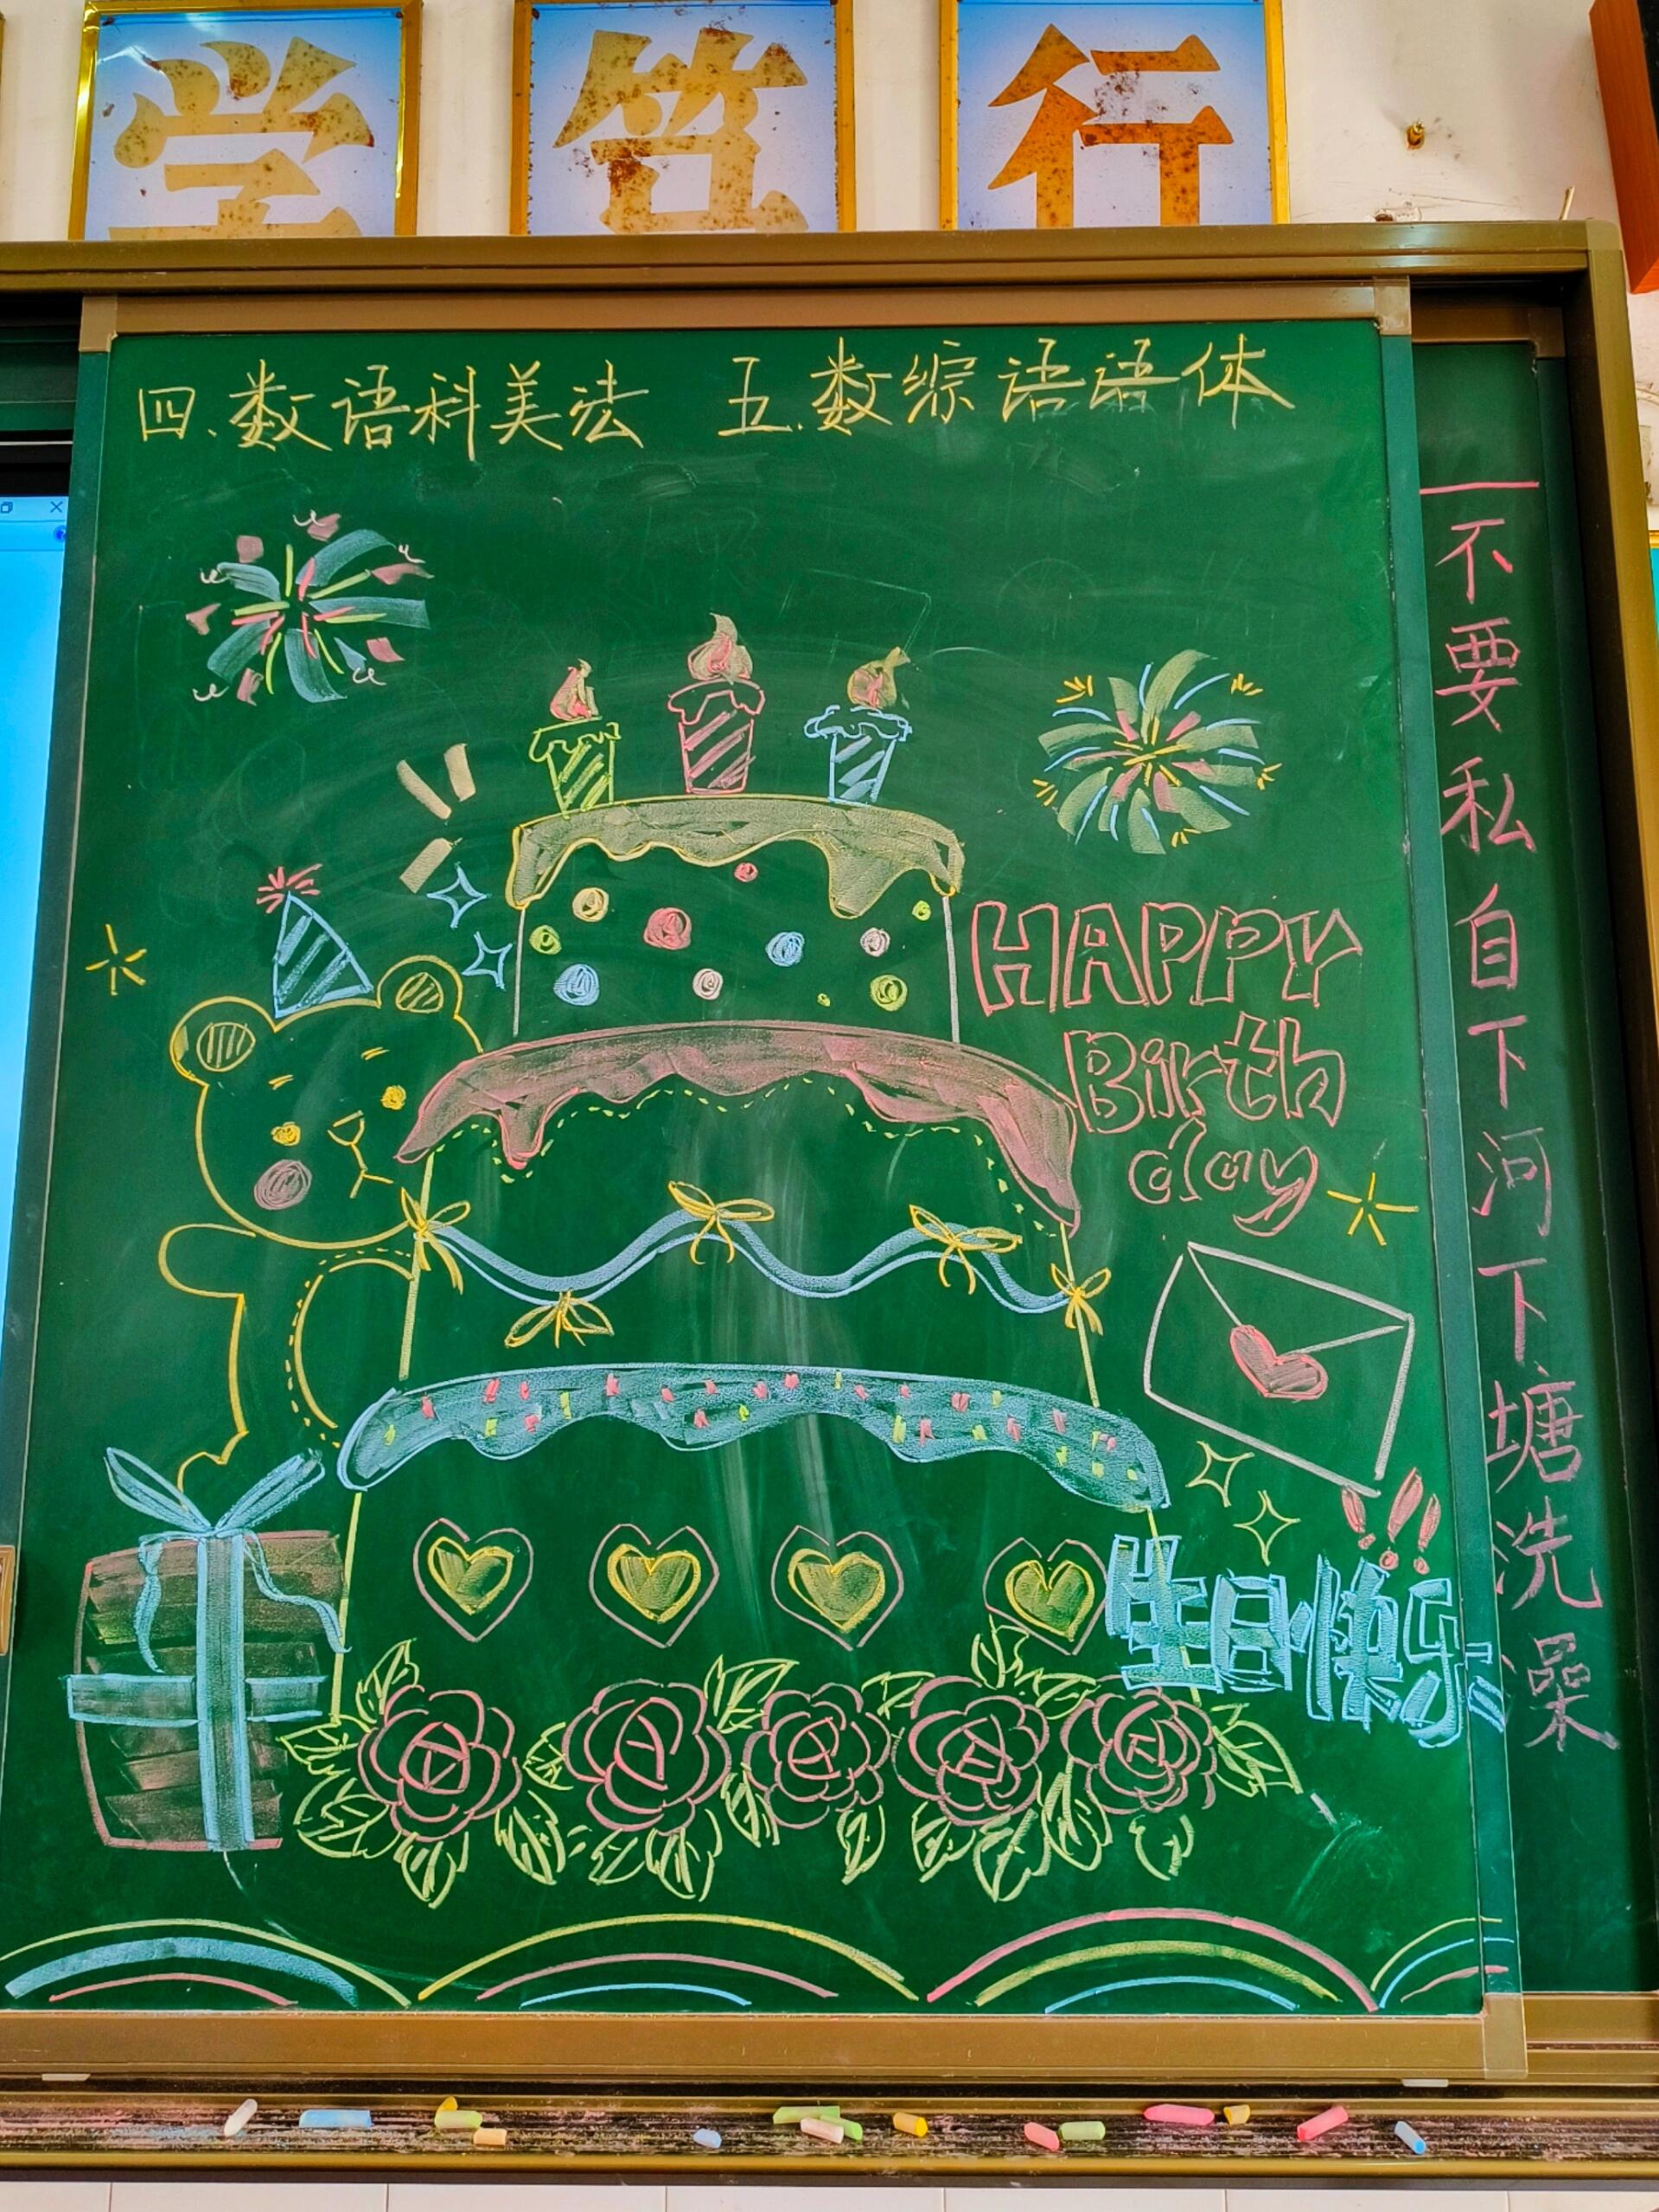 学 笃 行
四.数语科美法 五.数综语语体
HAPPY
Birth
day
生日快乐
不要私自下河下塘洗澡